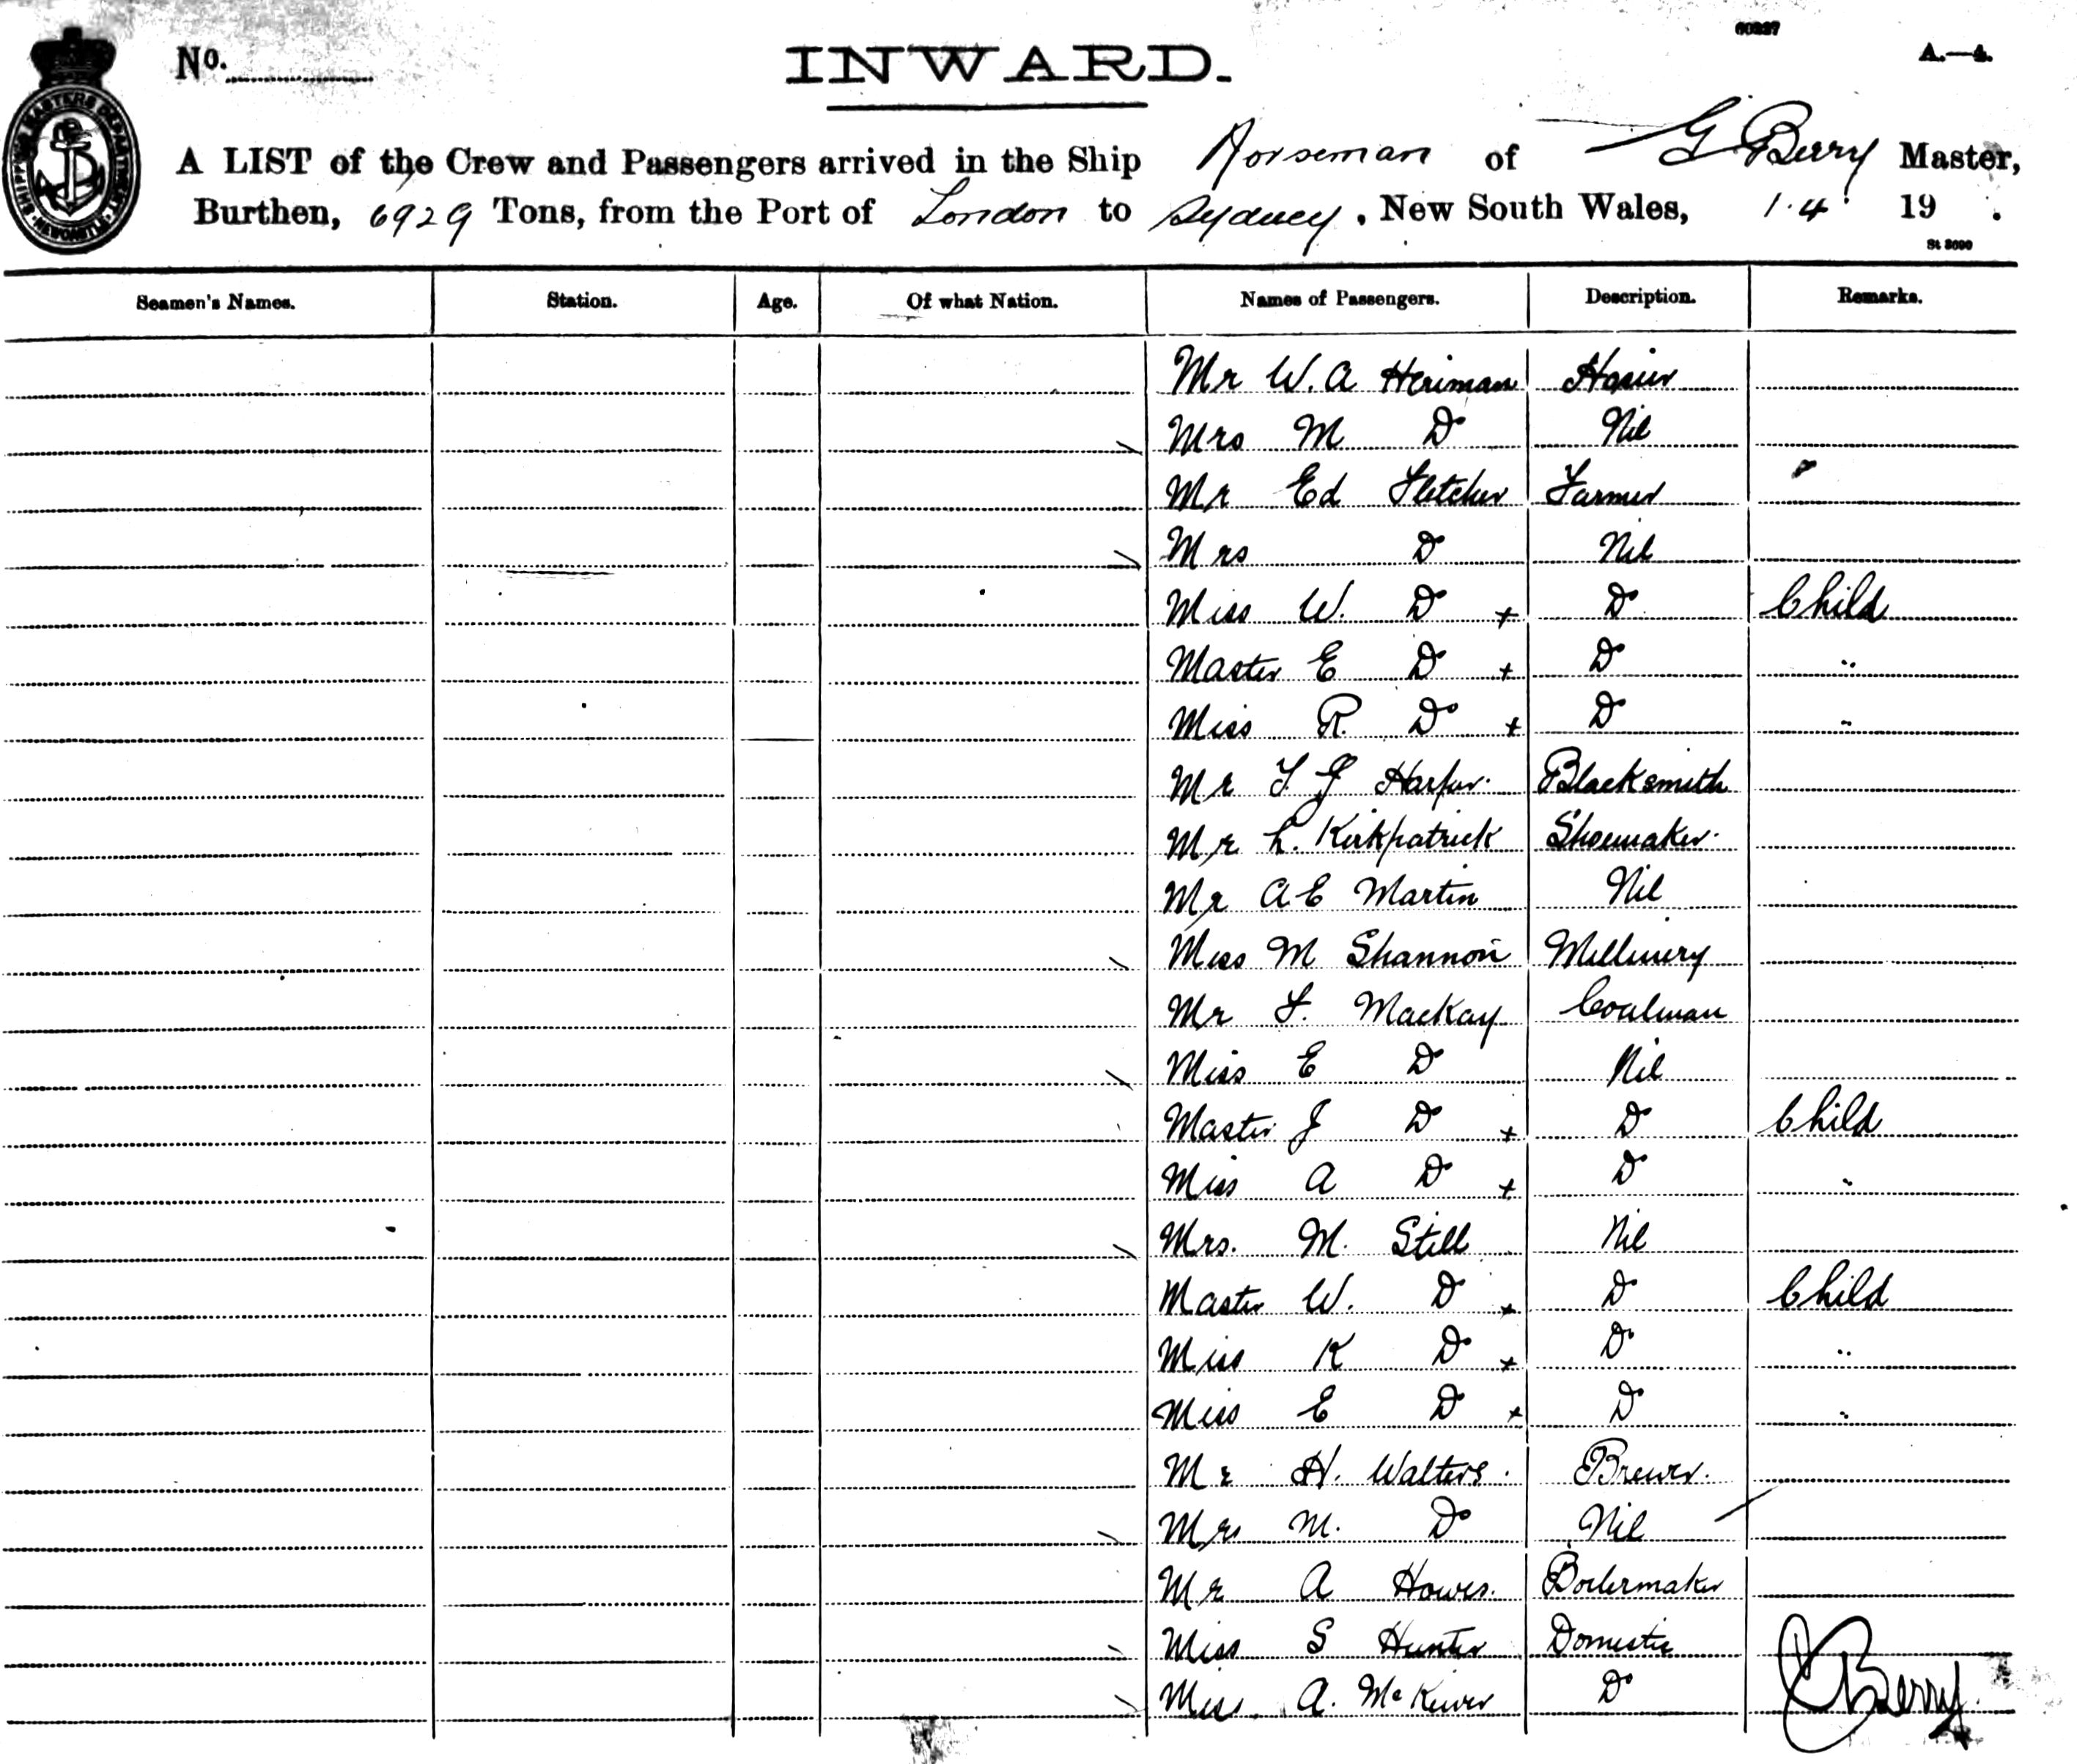 60327
A.—4.
No.
INWARD.
SHIPPING MASTERS DEPARTMENT
NEWCASTLE
A LIST of the Crew and Passengers arrived in the Ship Norseman of G Berry Master,
Burthen, 6929 Tons, from the Port of London to Sydney, New South Wales, 1.4 19 .
Seamen's Names. Station. Age. Of what Nation. Names of Passengers. Description. Remarks.
Mr W.A Heriman Hosier
Mrs M Do Nil
Mr Ed Fletcher Farmer
Mrs Do Nil
Miss W. Do + Do Child
Master E Do + Do "
Miss R. Do + Do "
Mr J Harper Blacksmith
Mr L. Kirkpatrick Shoemaker
Mr A E Martin Nil
Miss M Shannon Millinery
Mr F. Mackay Coalman
Miss E Do Nil
Master J Do + Do Child
Miss A Do + Do "
Mrs. M. Still Nil
Master W. Do + Do Child
Miss K Do + Do "
Miss E Do + Do "
Mr H. Walters. Brewer.
Mrs M. Do Nil
Mr A Howes. Boilermaker
Miss S Hunter Domestic
Miss A. Do
Berry